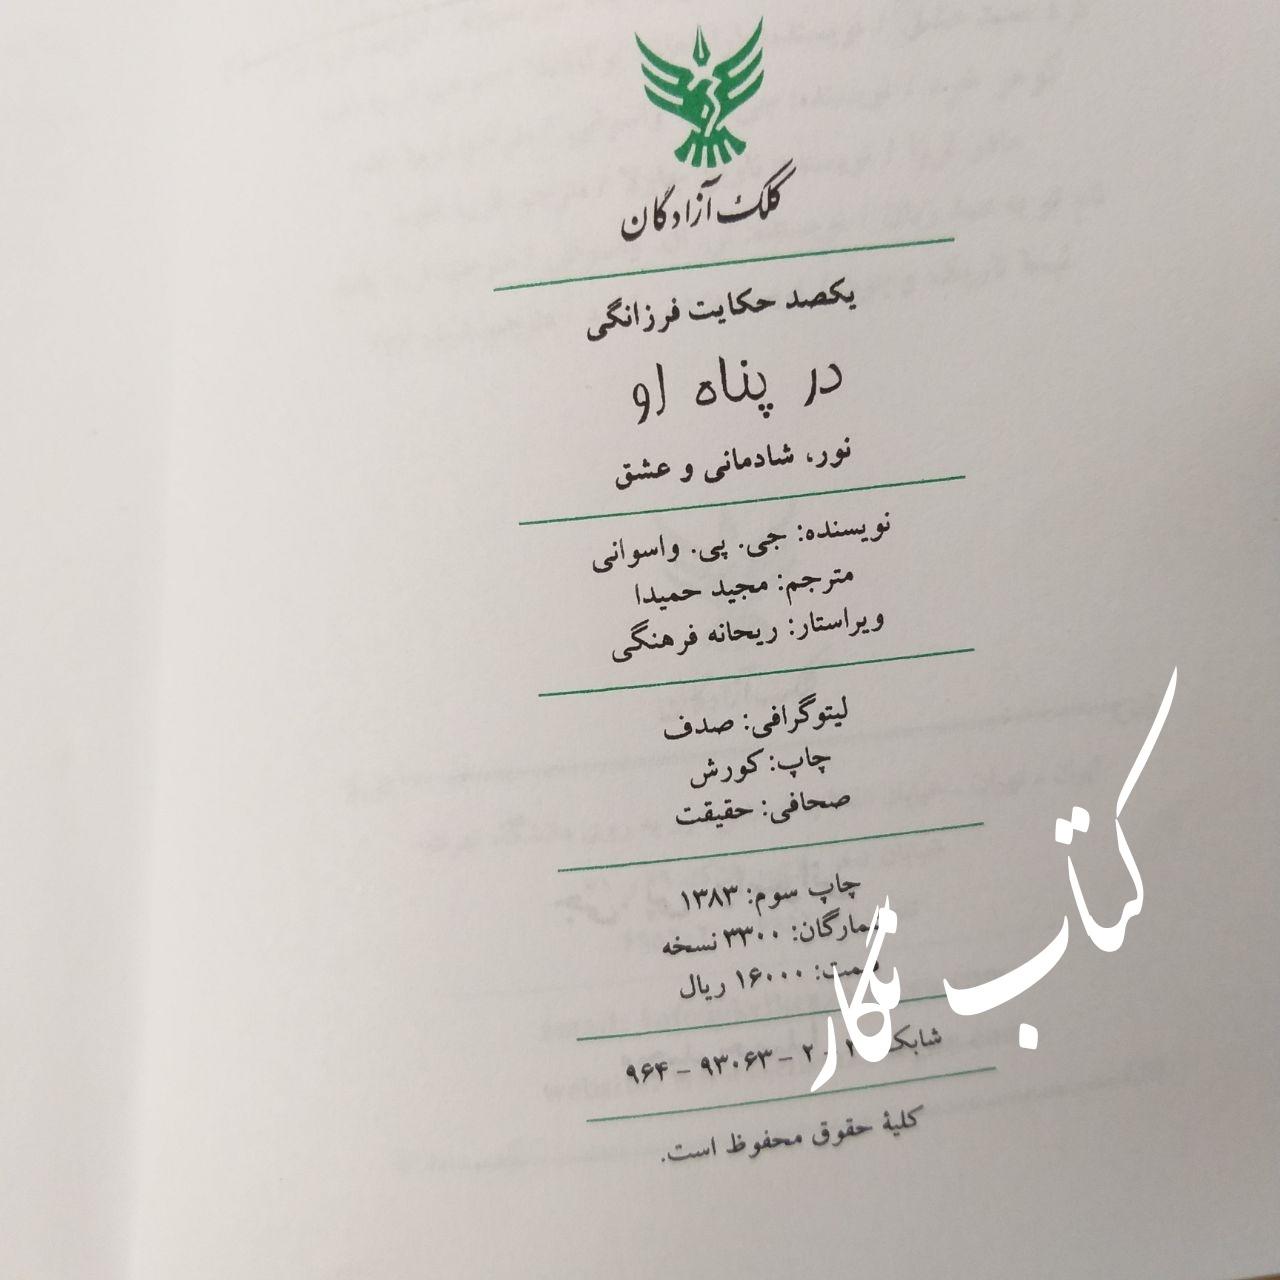 کلک آزادگان
یکصد حکایت فرزانگی
در پناه او
نور، شادمانی و عشق
نویسنده: جی. پی. واسوانی
مترجم: مجید حمیدا
ویراستار: ریحانه فرهنگی
لیتوگرافی: صدف
چاپ: کورش
صحافی: حقیقت
چاپ سوم: ۱۳۸۳
شمارگان: ۳۳۰۰ نسخه
قیمت: ۱۶۰۰۰ ریال
۲ - ۹۳۰۶۳ - ۹۶۴
کلیهٔ حقوق محفوظ است.
کتاب نگار